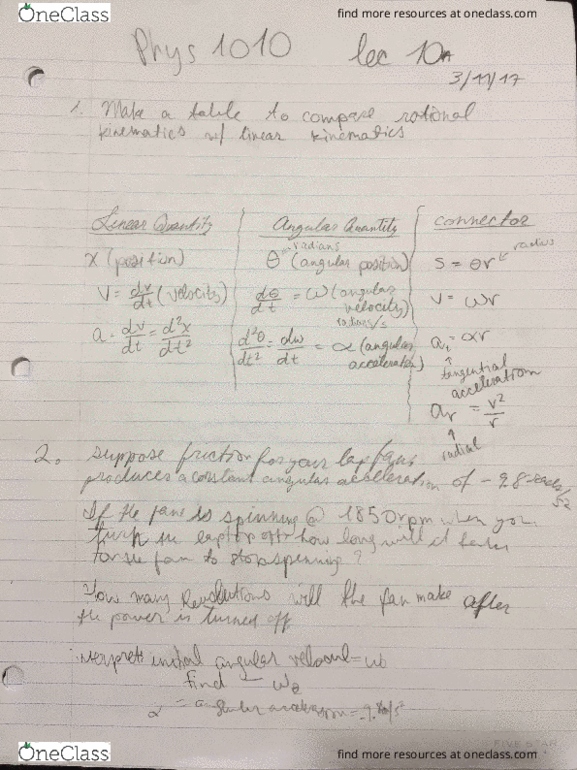 OneClass
find more resources at oneclass.com
Phys 1010 lec 10
3/11/17
1. Make a table to compare rotional
kinematics w/ linear kinematics
Linear Quantity
Angular Quantity
connector
x (position)
θ radians (angular position)
s = θr radius
v = dv/dt (velocity)
dθ/dt = ω (angular velocity)
radians/s
v = ωr
a = dv/dt = d²x/dt²
d²θ/dt² = dω/dt = α (angular
acceleration)
at = αr
tangential
acceleration
ar = v²/r
radial
2. Suppose friction for your laptop
produces a constant angular acceleration of -9.8 rads/s2
If the fan is spinning @ 1850rpm when you
turn laptop off how long will it take
for the fan to stop spinning?
How many Revolutions will the fan make after
the power is turned off
interpret: initial angular = ω
find - ω
α = angular acceleration = -9.8
FIVE STAR
OneClass
find more resources at oneclass.com